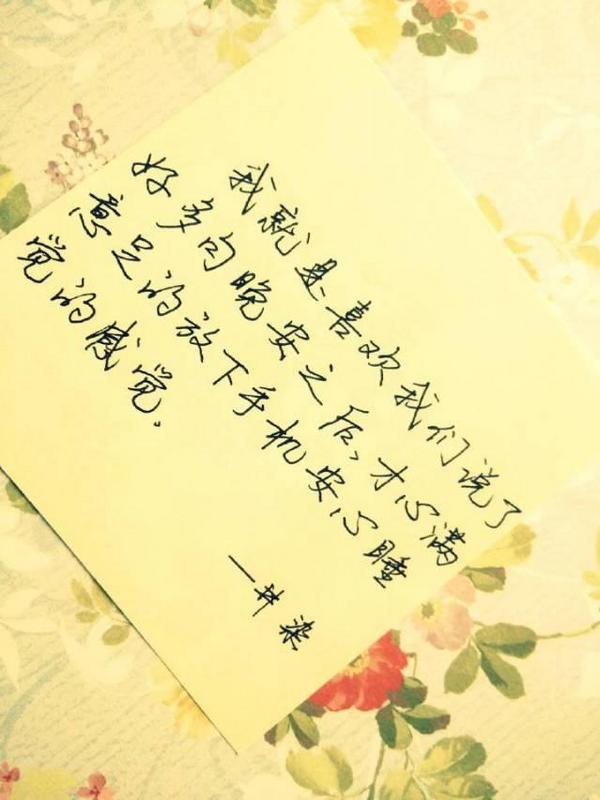 我就是喜欢我们说了
好多句晚安之后,才心满
意足的放下手机安心睡
觉的感觉。
一井染